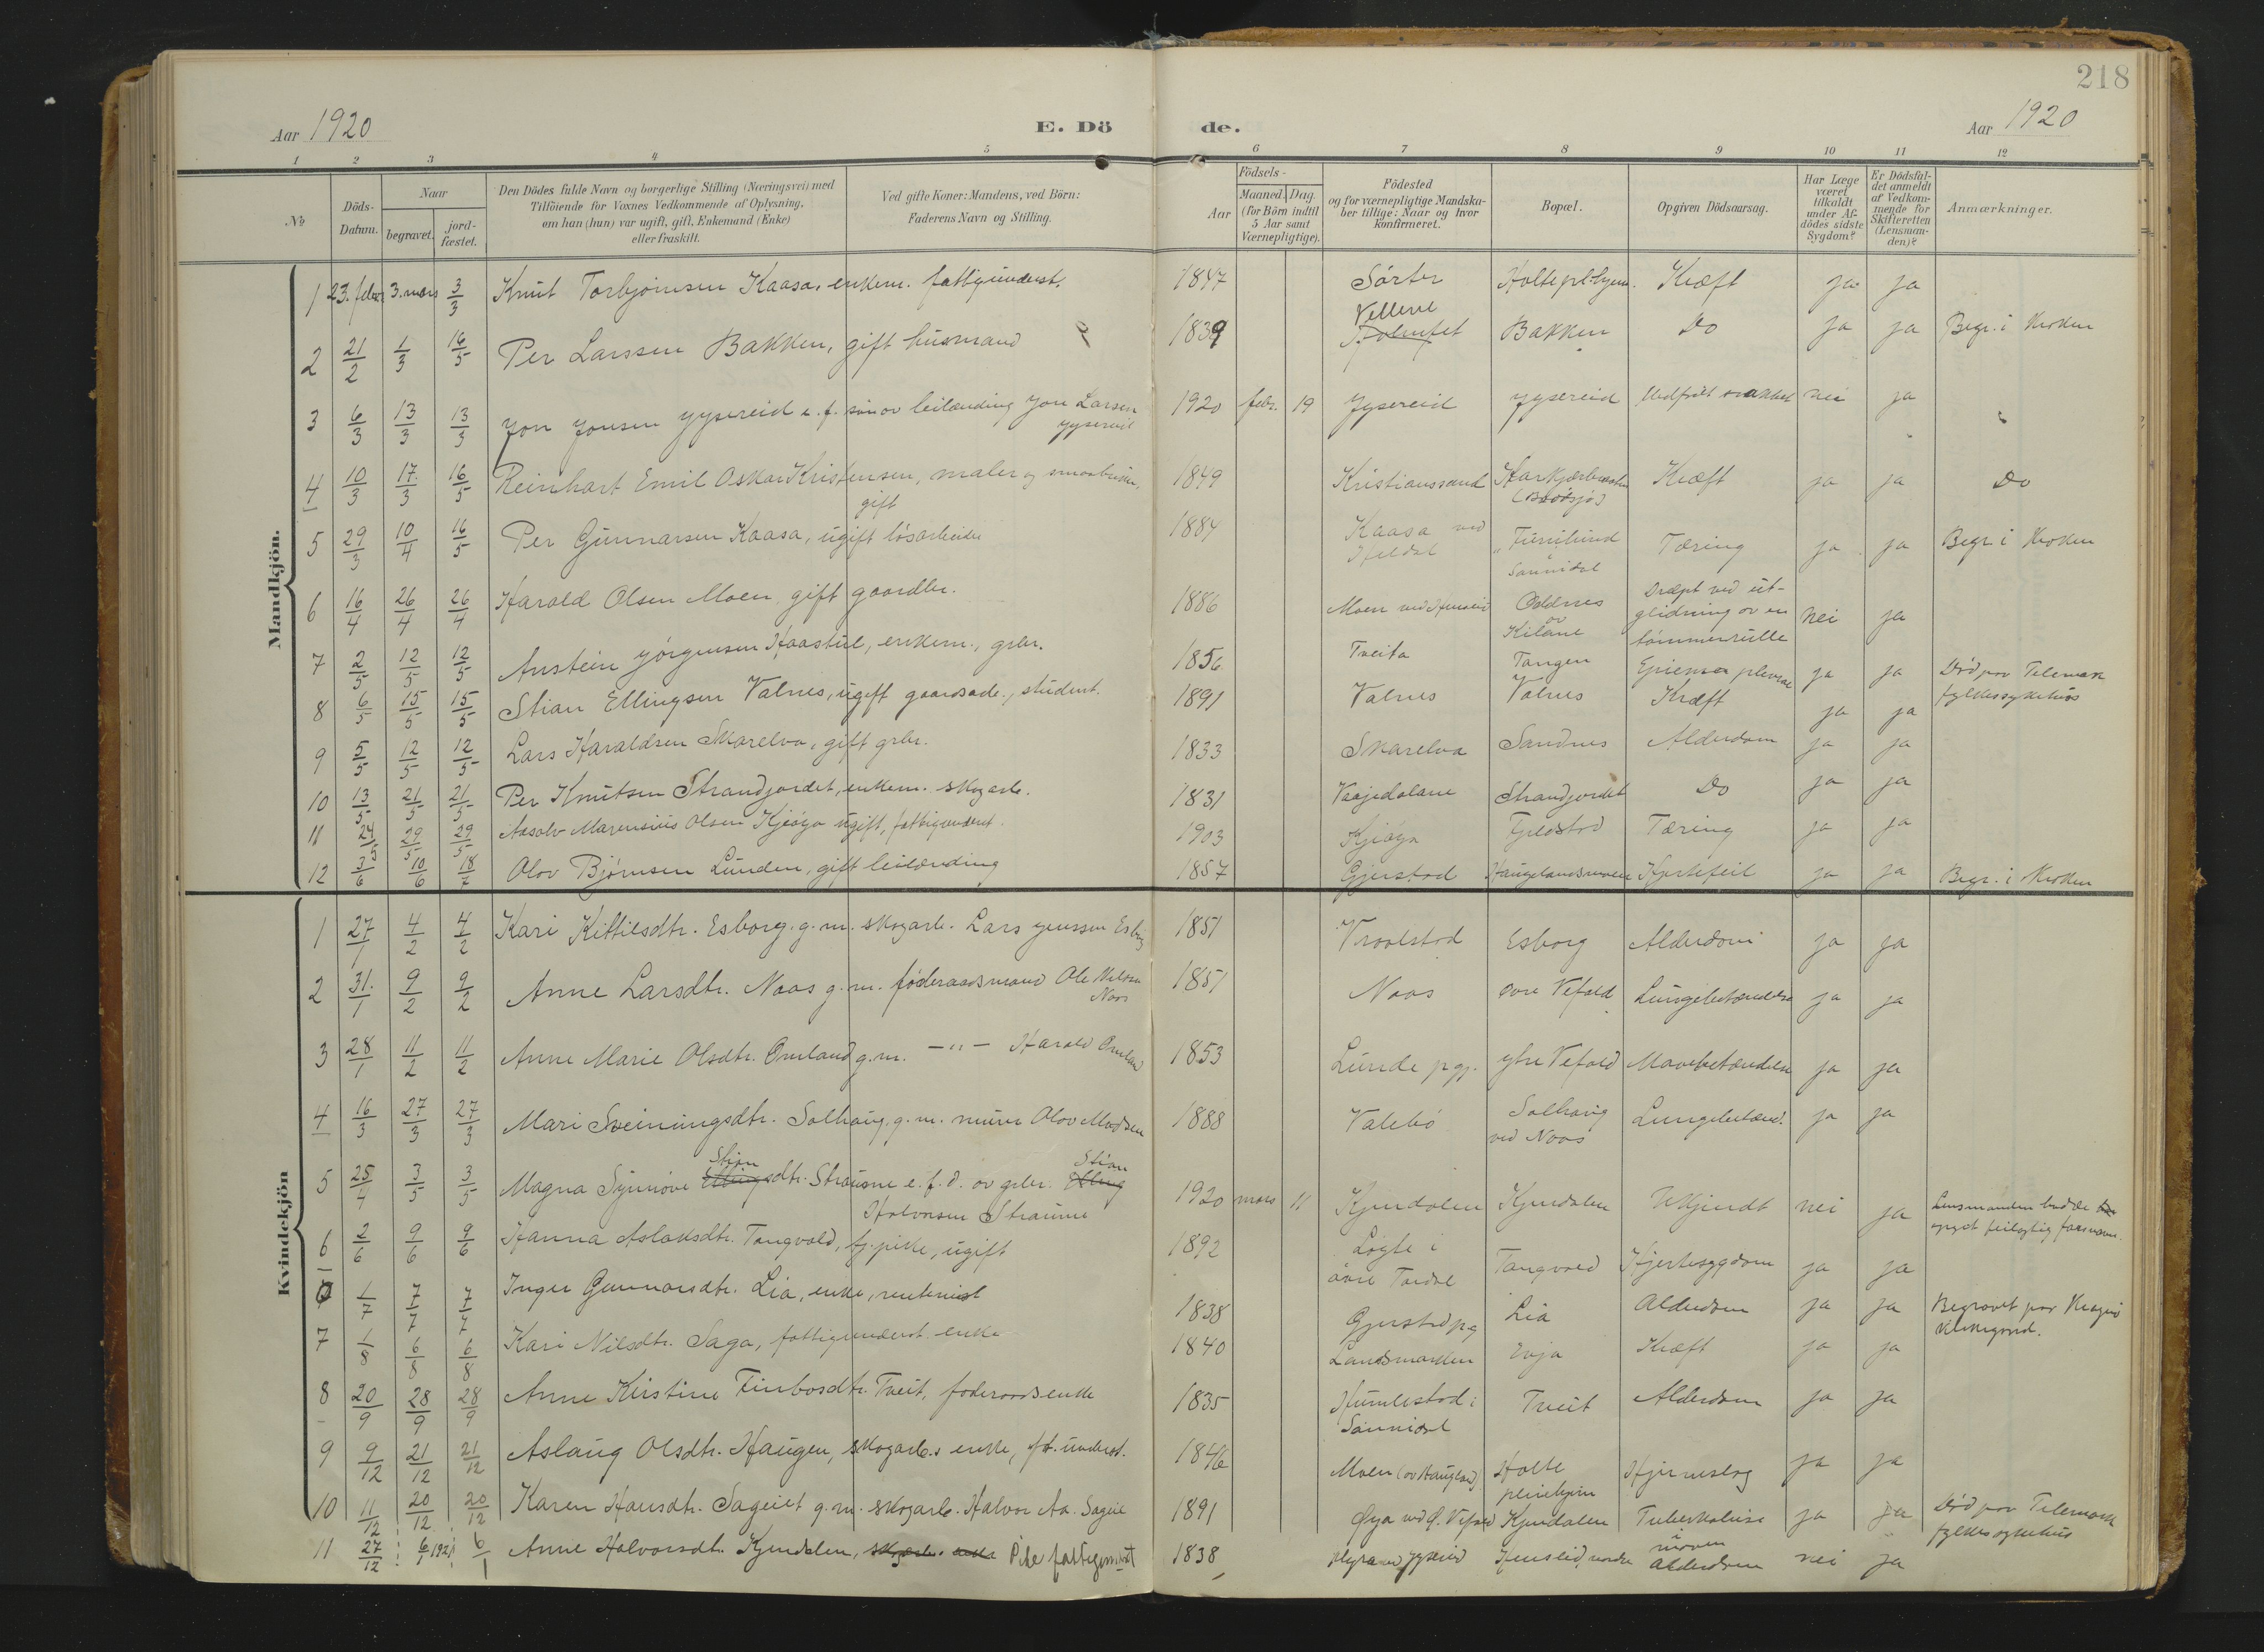 218
Aar 1920
E. Dö
de.
Aar 1920
1 2 3 4 5 6 7 8 9 10 11 12
No
Döds-Datum.
Naar
begravet.
jord-fæstet.
Den Dödes fulde Navn og borgerlige Stilling (Næringsvei) med
Tilföiende for Voxnes Vedkommende af Oplysning,
om han (hun) var ugift, gift, Enkemand (Enke)
eller fraskilt.
Ved gifte Koner: Mandens, ved Börn:
Faderens Navn og Stilling.
Födsels-
Aar
Maaned. Dag.
(for Börn indtil
5 Aar samt
Værnepligtige).
Födested
og for værnepligtige Mandska-
ber tillige: Naar og hvor
konfirmeret.
Bopæl.
Opgiven Dödsaarsag.
Har Læge
været
tilkaldt
under Af-
dödes sidste
Sygdom?
Er Dödsfal-
det anmeldt
af Vedkom-
mende for
Skifteretten
(Lensman-
den)?
Anmærkninger.
Mandkjön.
1 23. febr 3. mars 3/3 Knut Torbjørnsen Kaasa, enkem. fattigunderst. 1847 Sörter Holte pl.hjem. Kræft ja ja
2 21/2 1/3 16/5 Per Larssen Bakken, gift husmand 1839 Vellene Bakken Do ja ja Begr. i Kroken
3 6/3 13/3 13/3 Jon Jonsen Jysereid e. f. søn av leilænding Jon Larsen Jysereid 1920 febr. 19 Jysereid Jysereid Medfødt svakhet nei ja
4 10/3 17/3 16/5 Reinhart Emil Oskar Kristensen, maler og smaabruker, gift 1849 Kristianssand Kræft ja ja Do
5 29/3 10/4 16/5 Per Gunnarsen Kaasa, ugift løsarbeider 1884 Kaasa ved Furulund i Sannidal Tæring ja ja Begr. i Kroken
6 16/4 26/4 26/4 Harald Olsen Moen, gift gaardbr. 1886 Moen ved Henseid Oddnes av Kilane Dræpt ved ut-
glidning av en
tømmerrulle nei ja
7 2/5 12/5 12/5 Anstein Jörgensen Haastul, enkem., grbr. 1856 Tveita Tangen pleurae ja ja Død paa Telemark
fylkessykehus
8 6/5 15/5 15/5 Stian Ellingsen Valnes, ugift gaardsarb., student. 1891 Valnes Valnes Kræft ja ja
9 5/5 12/5 12/5 Lars Haraldsen Skarelva, gift grbr. 1833 Skarelva Sandnes Alderdom ja ja
10 13/5 21/5 21/5 Per Knutsen Strandjordet, enkem. skogarb. 1831 Vaajedalane Strandjordet Do ja ja
11 24/5 29/5 29/5 Aasolv Marensius Olsen Kjeöya ugift, fattigunderst. 1903 Kjeöya Tæring ja ja
12 3/6 10/6 18/7 Olov Bjørnsen Lunden, gift leilænding 1857 Gjerstad Haugelandsmoen Hjertefeil ja ja Begr. i Kroken
Kvindekjön
1 27/1 4/2 4/2 Kari Kittilsdtr. Esborg, g. m. skogarb. Lars Jenssen Esborg 1851 Vraalstad Esborg Alderdom ja ja
2 31/1 9/2 9/2 Anne Larsdtr. Naas g. m. föderaadsmand Ole Nilsen Naas 1851 Naas øvre Vefald Lungebetændelse ja ja
3 28/1 11/2 11/2 Anne Marie Olsdtr. Omland g. m. -"- Harald Omland 1853 Lunde pgj. ytre Vefald Mavebetændelse ja ja
4 16/3 27/3 27/3 Mari Sveinungsdtr. Solhaug, g. m. murer Olov Madsen 1888 Valebö Solhaug ved Naas Lungebetænd. ja ja
5 25/4 3/5 3/5 Magna Synnöve Stian Ellingsdtr. Straume e. f. d. av grbr. Stian Elling
Halvorsen Straume 1920 mars 11 Kjendalen Kjendalen Ukjendt nei ja Lensmanden hadde
opgit feilagtig farsnavn.
6 2/6 9/6 9/6 Hanna Aslaksdtr. Tangvald, tj. pike, ugift 1892 Lögte i øvre Tördal Tangvald Hjertesygdom ja ja
1/7 7/7 7/7 Inger Gunnarsdtr. Lia, enke, rentenist 1838 Gjerstad pg Lia Alderdom ja ja Begravet paa Kragerø
kirkegaard.
7 1/8 6/8 6/8 Kari Nilsdtr. Saga, fattigunderst. enke 1840 Landsmarken Evja Kræft ja ja
8 20/9 28/9 28/9 Anne Kirstine Finbosdtr. Tveit, föderaadsenke 1835 Humlestad i Sannidal Tveit Alderdom ja ja
9 9/12 21/12 21/12 Aslaug Olsdtr. Haugen, skogarb.s enke, ft. underst. 1846 Moen (av Haugland) Holte pleiehjem Hjerneslag ja ja
10 11/12 20/12 20/12 Karen Hansdtr. Sageiet g. m. skogarb. Halvor Aa. Sageie 1891 Øya ved Ö. Vefald Kjendalen Tuberkulose i maven ja ja Død paa Telemark
fylkessykehus
11 27/12 6/1 1921 6/1 Anne Halvorsdt. Kjendalen, skogarb. enke Pike fattigunderst 1838 Henseid nordre Alderdom nei ja